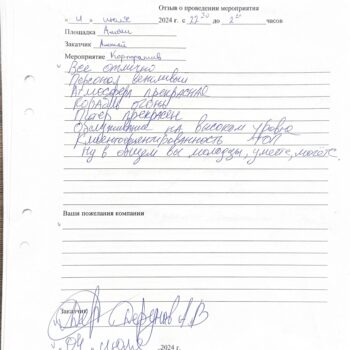 Отзыв о проведении мероприятия
« 4 » июля 2024 г. с 22 до 2 часов
Площадка
Заказчик
Мероприятие Корпоратив
Все отлично
Персонал вежливый
Атмосфера прекрасная
Корабль огонь
Питер прекрасен
Обслуживание на высоком уровне
Клиентоориентированность ТОП
Ну в общем вы молодцы, умеете, можете.
Ваши пожелания компании
Заказчик
« 04 » июля 2024 г.